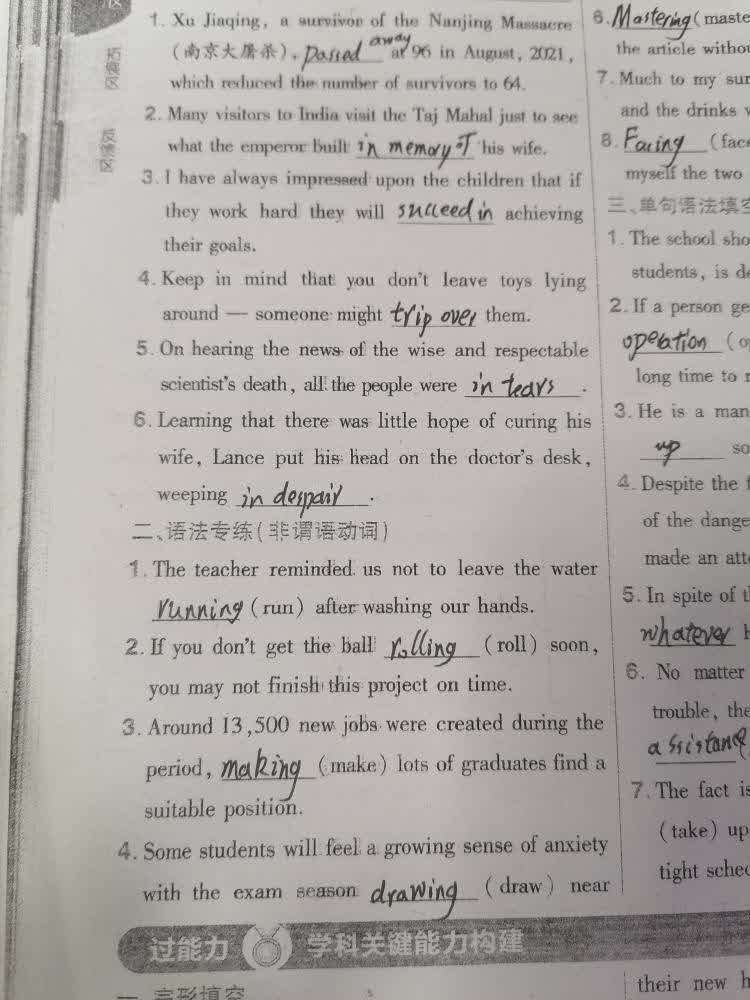 拓展区
反馈区
1. Xu Jiaqing, a survivor of the Nanjing Massacre
(南京大屠杀), passed away at 96 in August, 2021,
which reduced the number of survivors to 64.
2. Many visitors to India visit the Taj Mahal just to see
what the emperor built in memory of his wife.
3. I have always impressed upon the children that if
they work hard they will succeed in achieving
their goals.
4. Keep in mind that you don't leave toys lying
around — someone might trip over them.
5. On hearing the news of the wise and respectable
scientist's death, all the people were in tears.
6. Learning that there was little hope of curing his
wife, Lance put his head on the doctor's desk,
weeping in despair.
二、语法专练(非谓语动词)
1. The teacher reminded us not to leave the water
running (run) after washing our hands.
2. If you don't get the ball rolling (roll) soon,
you may not finish this project on time.
3. Around 13,500 new jobs were created during the
period, making (make) lots of graduates find a
suitable position.
4. Some students will feel a growing sense of anxiety
with the exam season drawing (draw) near
过能力 学科关键能力构建
一、完形填空
6. Mastering (maste
the article withou
7. Much to my sur
and the drinks
8. Facing (face
myself the two
三、单句语法填空
1. The school sho
students, is de
2. If a person ge
operation (o
long time to
3. He is a man
up so
4. Despite the
of the dange
made an att
5. In spite of t
whatever
6. No matter
trouble, the
assistance
7. The fact is
(take) up
tight sched
their new h